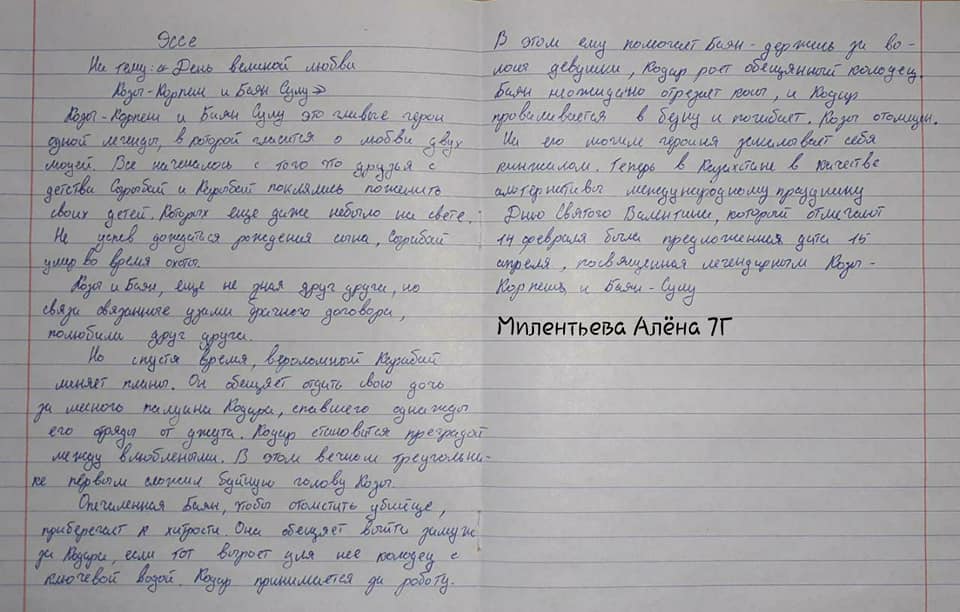 Эссе
На тему: «День великой любви
Козы-Корпеш и Баян Сулу»
Козы-Корпеш и Баян Сулу это главные герои
одной легенды, в которой гласится о любви двух
людей. Все начиналось с того что друзья с
детства Сарыбай и Карабай поклялись поженить
своих детей. Которых еще даже небыло на свете.
Не успев дождаться рождения сына, Сарыбай
умер во время охоты.
Козы и Баян, еще не зная друг друга, но
связа связанные узами брачного договора,
полюбили друг друга.
Но спустя время, вероломный Карабай
меняет планы. Он обещяет отдать свою дочь
за месного палуана Кодара, спавшего однажды
его отряды от джута. Кодар становится преградой
между влюблеными. В этом вечном треугольни-
ке первым сложил буйную голову Козы.
Опечаленная Баян, чтобы отомстить убийце,
приберегает к хитрости. Она обещяет выйти замуж
за Кодара, если тот выроет для нее колодец с
ключевой водой. Кодар принимается за работу.
В этом ему помогает Баян-держась за во-
лося девушки, Кодар роет обещянный колодец.
Баян неожидано отрезает косы, и Кодар
проваливается в бедну и погибает. Козы отомщен.
На его могиле героиня закалывает себя
кинжалом. Теперь в Казахстане в качестве
альтернативы международному празднику
Дню Святого Валентина, который отмечают
14 февраля была предложенная дата 15
апреля, посвященная легендарным Козы-
Корпеш, и Баян-Сулу
Милентьева Алёна 7Г